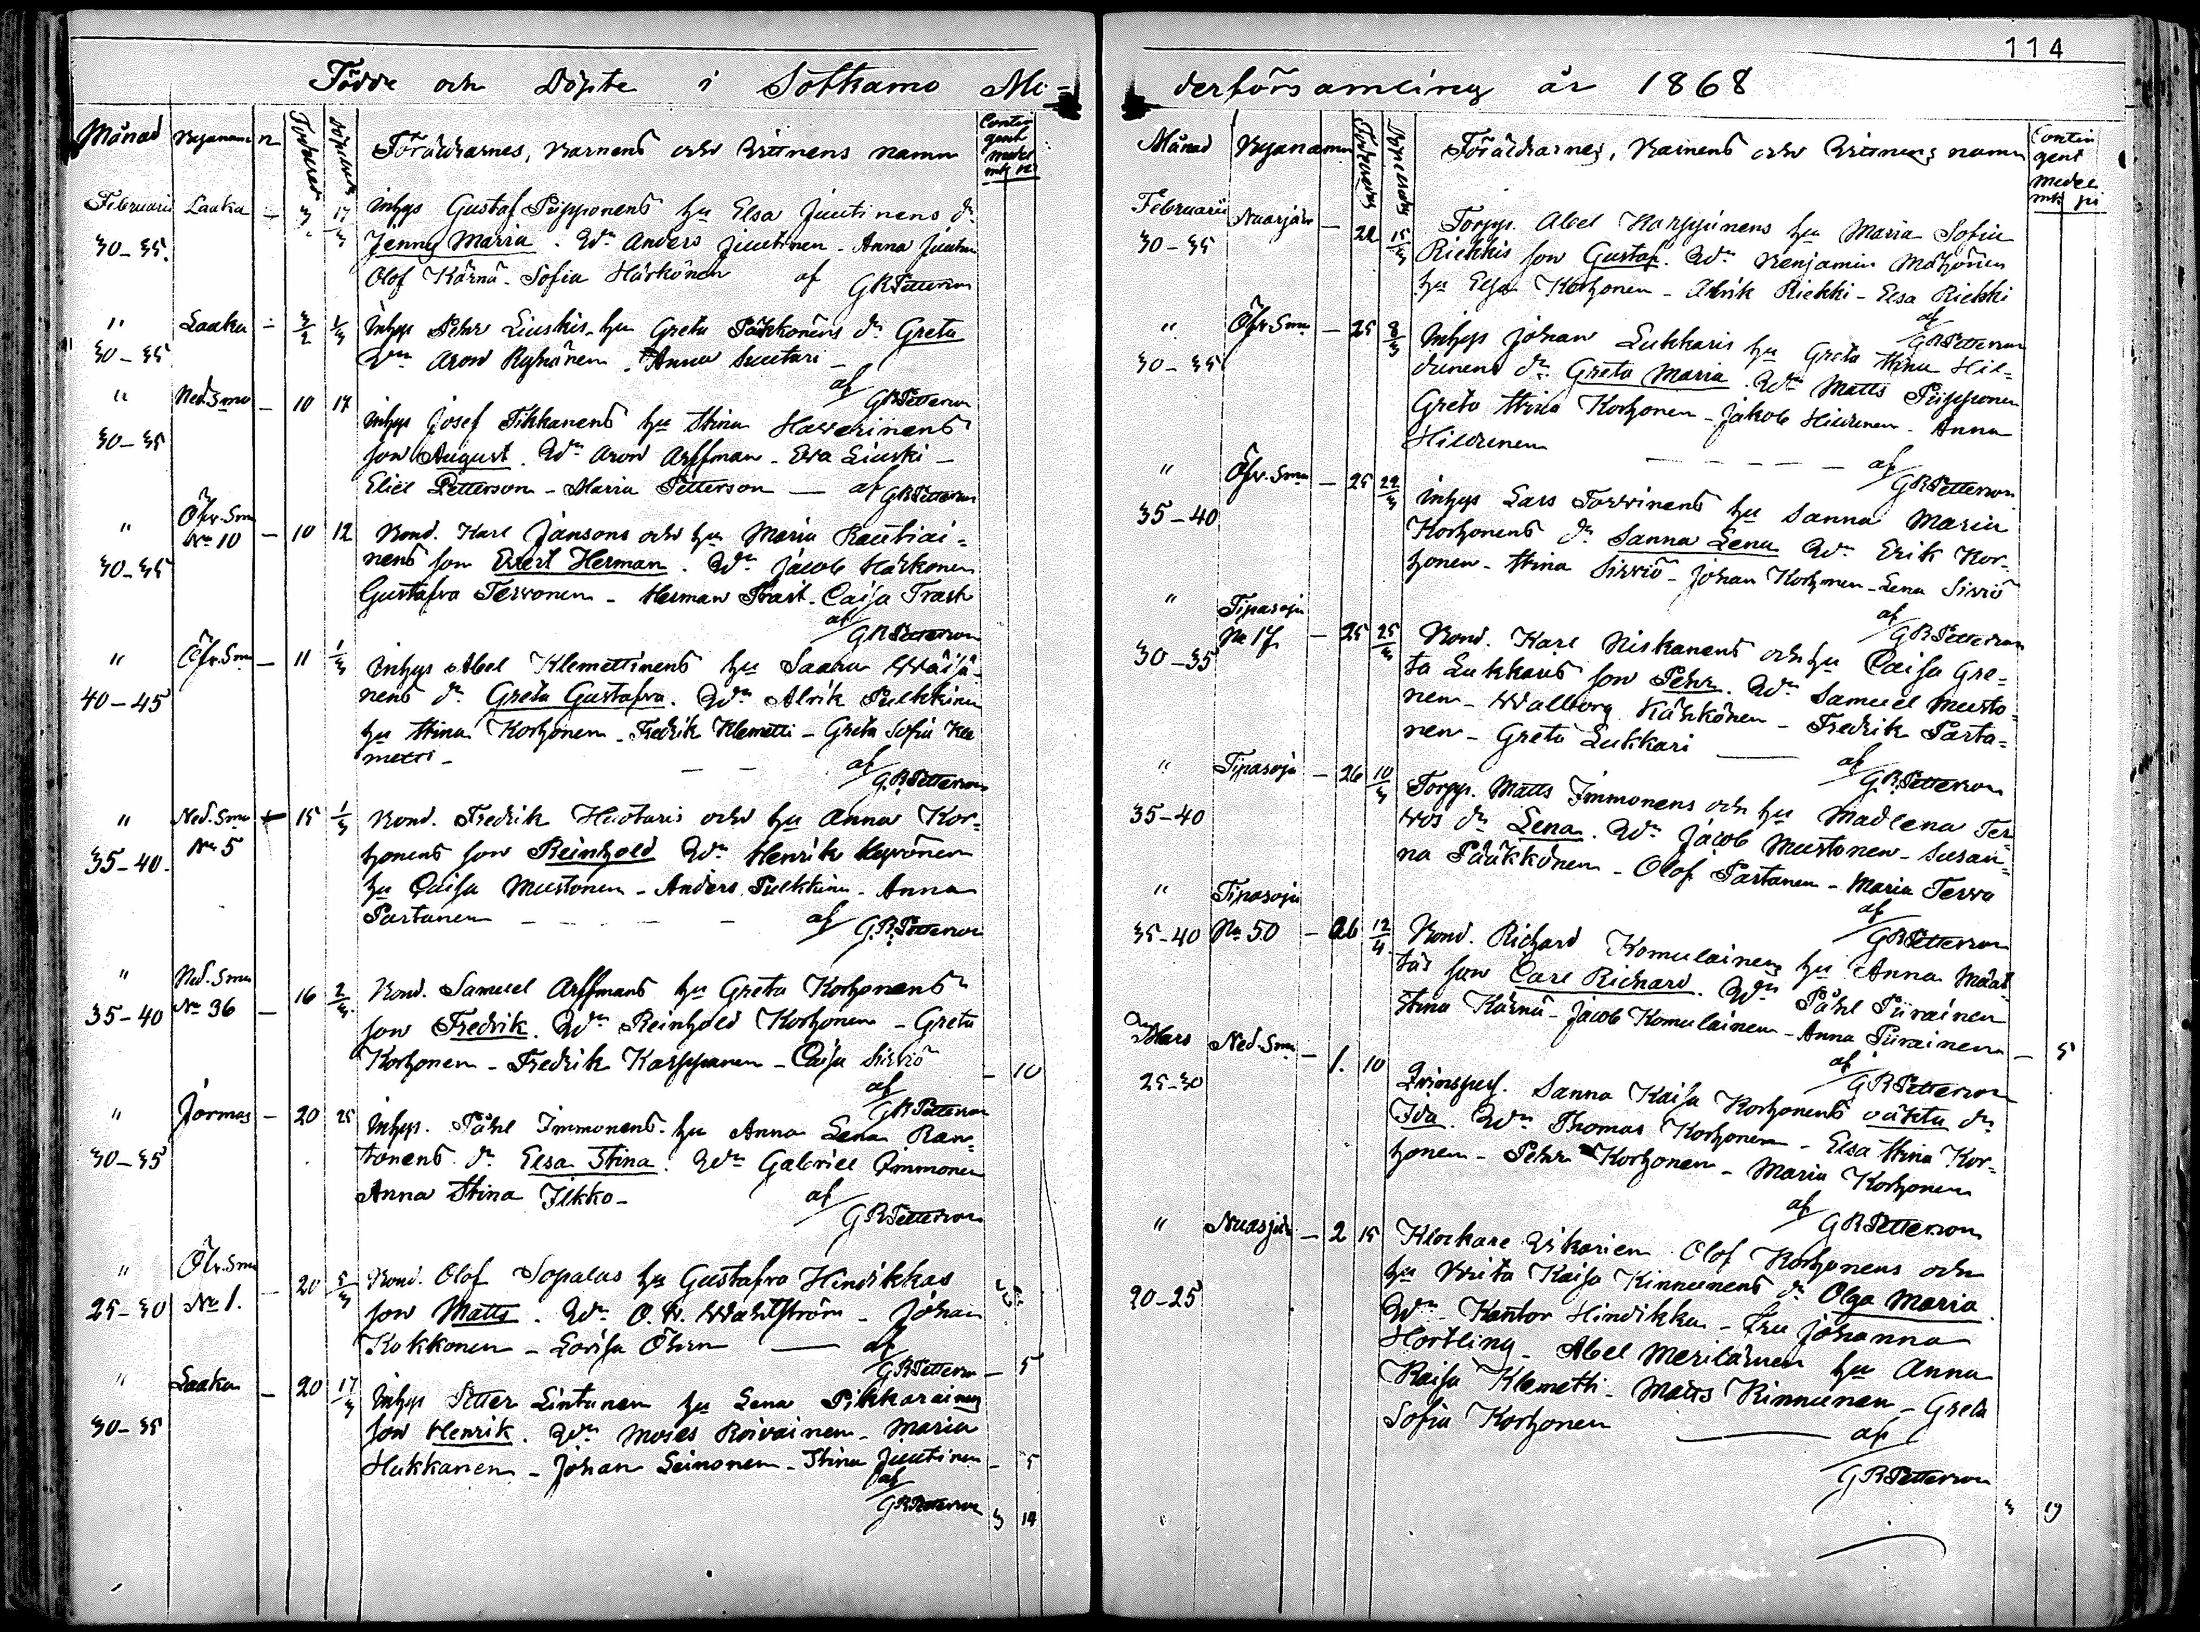 114
Födde och Döpte i Sotkamo Mo-
Månad Byanamn n Födelsed Döpelsed Föräldrarnes, Barnens och Vittnens namn Contin gent medel mk p:i
Februarii Laaka - 3 17/3 Inhys Gustaf Piipponens hu Elsa Juutinens dr
30-35. Jenny Maria. Wn Anders Juutinen - Anna Juutin
Olof Kärnä. Sofia Härkönen af GRPetterson
" Laaka - 3/2 1/3 Inhys Pehr Liuskis hu Greta Pääkkönens dr Greta
30-35 Wn Aron Ryhänen. Anna Suutari -
af GRPetterson
" Ned.Smo - 10 17 Inhys Josef Tikkanens hu Stina Haverinens
30-35 son August. Wn Aron Arffman - Eva Liuski -
Eliel Petterson - Maria Petterson - af GRPetterson
" Öfv.Smo No 10 - 10 12 Bond. Karl Jansons och hu Maria Rautiai-
30-35 nens son Evert Herman. Wn Jacob Härkönen
Gustafva Tervonen - Herman Trast. Caisa Trast
af GRPetterson
" Öfv.Smo - 11 1/3 Inhys Abel Klemettinens hu Saara Wäisä-
40-45 nens dr Greta Gustafva. Wn Alrik Pulkkinen
hu Stina Korhonen - Fredrik Klemetti - Greta Sofia Kle
metti -
af GRPetterson
" Ned.Smo No 5 15 1/3 Bond. Fredrik Huotaris och hu Anna Kor-
35-40. honens son Reinhold Wn Henrik Heponen
hu Caisa Mustonen - Anders Pulkkinen - Anna
Partanen - - - af GRPetterson
" Ned.Smo
35-40 No 36 - 16 2/3 Bond. Samuel Arffmans hu Greta Korhonens
son Fredrik. Wn Reinhold Korhonen - Greta
Korhonen - Fredrik Karppanen - Caisa Sirviö - 10
af GRPetterson
" Jormas - 20 25 Inhys. Påhl Immonens hu Anna Lena Ran-
30-35 tanens dr Elsa Stina. Wn Gabriel Immonen
Anna Stina Ilkko -
af GRPetterson
" Öfv.Smo
25-30 No 1. - 20 5/3 Bond. Olof Sopalas hu Gustafva Hindikkas
son Matts. Wn O.W. Wahlström - Johan
Kokkonen - Lovisa Öhrn - af
GRPetterson - 5
" Laaka - 20 17/3 Inhys Petter Lintunen hu Lena Pikkarainens
30-35 son Henrik. Wn Moses Roivainen - Maria
Hukkanen - Johan Leinonen - Stina Juutinen - 5
af GRPetterson 3 14
derförsamling år 1868
Månad Byanamn Födelsed Döpelsed Föräldrarnes, Barnens och Vittnens namn Contin gent medel mk p:i
Februarii Nuasjärv - 22 15/3 Torpp. Abel Karppinens hu Maria Sofia
30-35 Riekkis son Gustaf. Wn Benjamin Mähönen
hu Elsa Korhonen - Alrik Riekki - Elsa Riekki
af GRPetterson
" Öfv.Smo - 25 8/3 Inhys Johan Lukkaris hu Greta Stina Hil-
30-35 dunens dr Greta Maria. Wn Matts Piipponen
Greta Stina Korhonen - Jakob Hildunen - Anna
Hildunen - - - af
GRPetterson
" Öfv.Smo - 25 22/3 Inhys Lars Torvinens hu Sanna Maria
35-40 Korhonens dr Sanna Lena Wn Erik Kor-
honen - Stina Sirviö - Johan Korhonen - Lena Sirviö
af GRPetterson
" Tipasoja
No 17 - 25 25/3 Bond. Karl Niskanens och hu Caisa Gre-
30-35 ta Lukkaris son Pehr. Wn Samuel Musto-
nen - Walborg Kähkönen - Fredrik Parta-
nen - Greta Lukkari - af
GRPetterson
" Tipasoja - 26 10/3 Torpp. Matts Immonens och hu Madlena Ter-
35-40 vos dr Lena. Wn Jacob Mustonen - Susan-
na Pääkkönen - Olof Partanen - Maria Tervo
af GRPetterson
" Tipasoja
35-40 No 50 - 26 12/4 Bond. Richard Komulainens hu Anna Määt-
täs son Carl Richard. Wn Påhl Piirainen
Stina Kärnä - Jacob Komulainen - Anna Piirainen - 5
af GRPetterson
Mars Ned.Smo - 1. 10 Qvinspers. Sanna Kaisa Korhonens oäkta dr
25-30 Ida. Wn Thomas Korhonen - Elsa Stina Kor-
honen - Pehr Korhonen - Maria Korhonen
af GRPetterson
" Nuasjärv - 2 15 Klockare Vikarien Olof Korhonens och
20-25 hu Brita Kaisa Kinnunens dr Olga Maria
Wn Kantor Hindikka - Fru Johanna
Hortling - Abel Meriläinen hu Anna
Kaisa Klemetti - Matts Kinnunen - Greta
Sofia Korhonen - af
GRPetterson
3 19